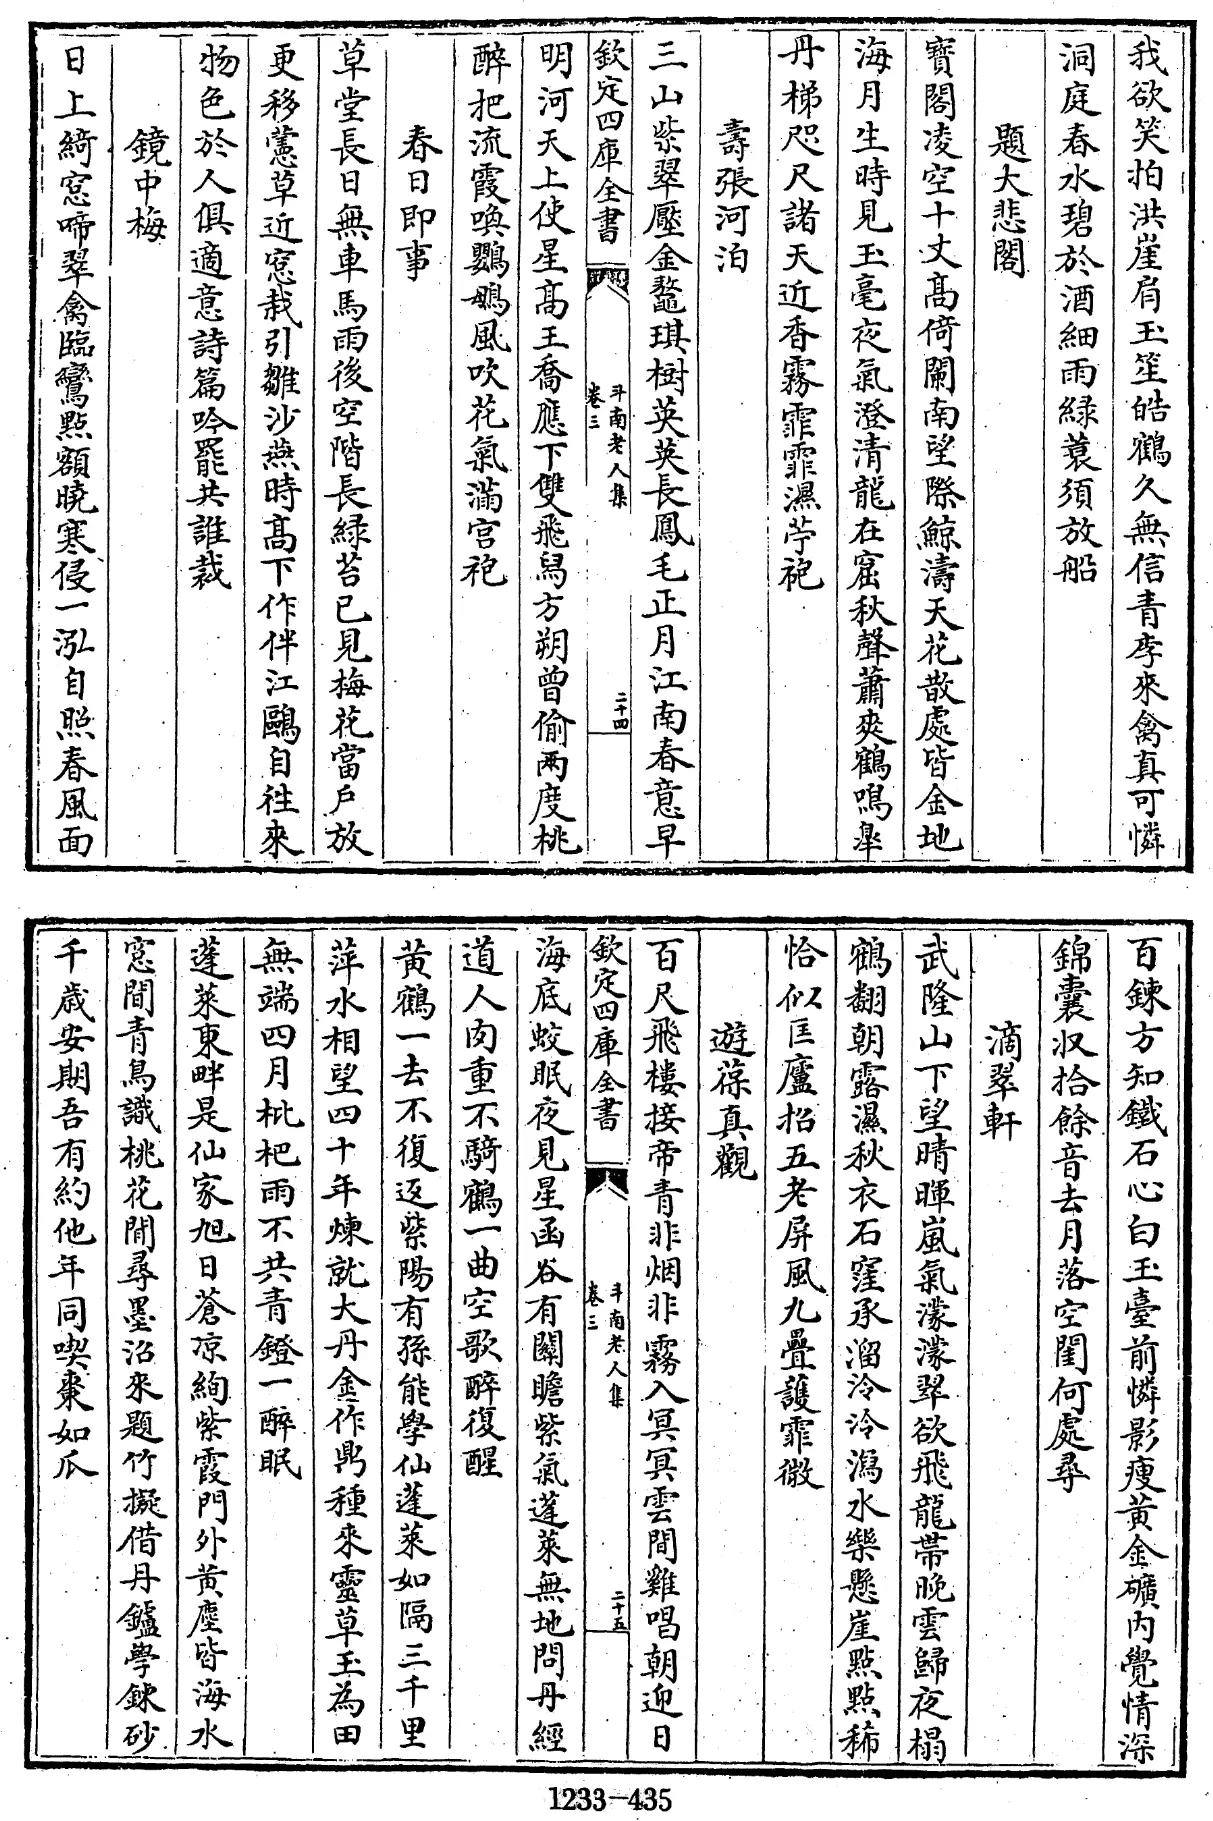 我欲笑拍洪崖肩玉笙皓鶴久無信青李來禽真可憐
洞庭春水碧於酒細雨緑蓑須放船
題大悲閣
寳閣凌空十丈髙倚闌南望際鯨濤天花散處皆金地
海月生時見玉毫夜氣澄清龍在窟秋聲蕭爽鶴鳴臯
丹梯咫尺諸天近香霧霏霏濕苧袍
壽張河泊
三山紫翠壓金鼇琪樹英英長鳳毛正月江南春意早
欽定四庫全書
斗南老人集
卷三
二十四
明河天上使星髙王喬應下雙飛舄方朔曾偷兩度桃
醉把流霞喚鸚鵡風吹花氣滿宫袍
春日即事
草堂長日無車馬雨後空階長緑苔已見梅花當戶放
更移蕙草近窓栽引雛沙燕時髙下作伴江鷗自往來
物色於人俱適意詩篇吟罷共誰裁
鏡中梅
日上綺窓啼翠禽臨鸞點額曉寒侵一泓自照春風面
百鍊方知鐵石心白玉臺前憐影瘦黃金礦内覺情深
錦囊収拾餘音去月落空閨何處尋
滴翠軒
武隆山下望晴暉嵐氣濛濛翠欲飛龍帶晚雲歸夜榻
鶴翻朝露濕秋衣石窪承溜泠泠瀉水樂懸崖點點稀
恰似匡廬招五老屏風九疊護霏微
遊葆真觀
百尺飛樓接帝青非烟非霧入冥冥雲間雞唱朝迎日
欽定四庫全書
斗南老人集
卷三
二十五
海底蛟眠夜見星函谷有關瞻紫氣蓬萊無地問丹經
道人肉重不騎鶴一曲空歌醉復醒
黃鶴一去不復返紫陽有孫能學仙蓬萊如隔三千里
萍水相望四十年煉就大丹金作鼎種來靈草玉為田
無端四月枇杷雨不共青鐙一醉眠
蓬萊東畔是仙家旭日蒼凉絢紫霞門外黃塵皆海水
窓間青鳥識桃花閒尋墨沼來題竹擬借丹鑪學鍊砂
千歲安期吾有約他年同喫棗如瓜
1233—435